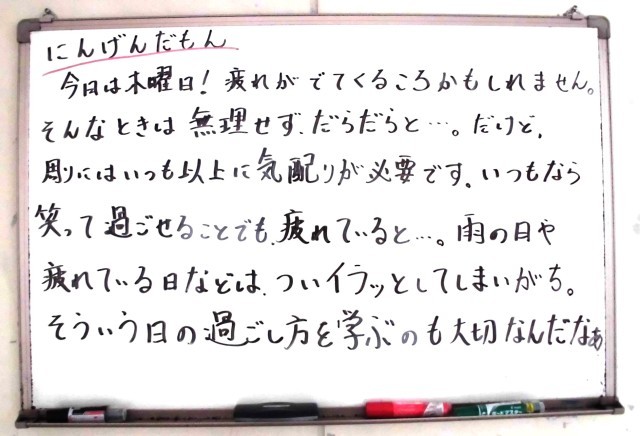 にんげんだもん
今日は木曜日！疲れがでてくるころかもしれません。
そんなときは無理せず、だらだらと…。だけど、
周りにはいつも以上に気配りが必要です。いつもなら
笑って過ごせることでも、疲れていると…。雨の日や
疲れている日などは、ついイラッとしてしまいがち。
そういう日の過ごし方を学ぶのも大切なんだなぁ